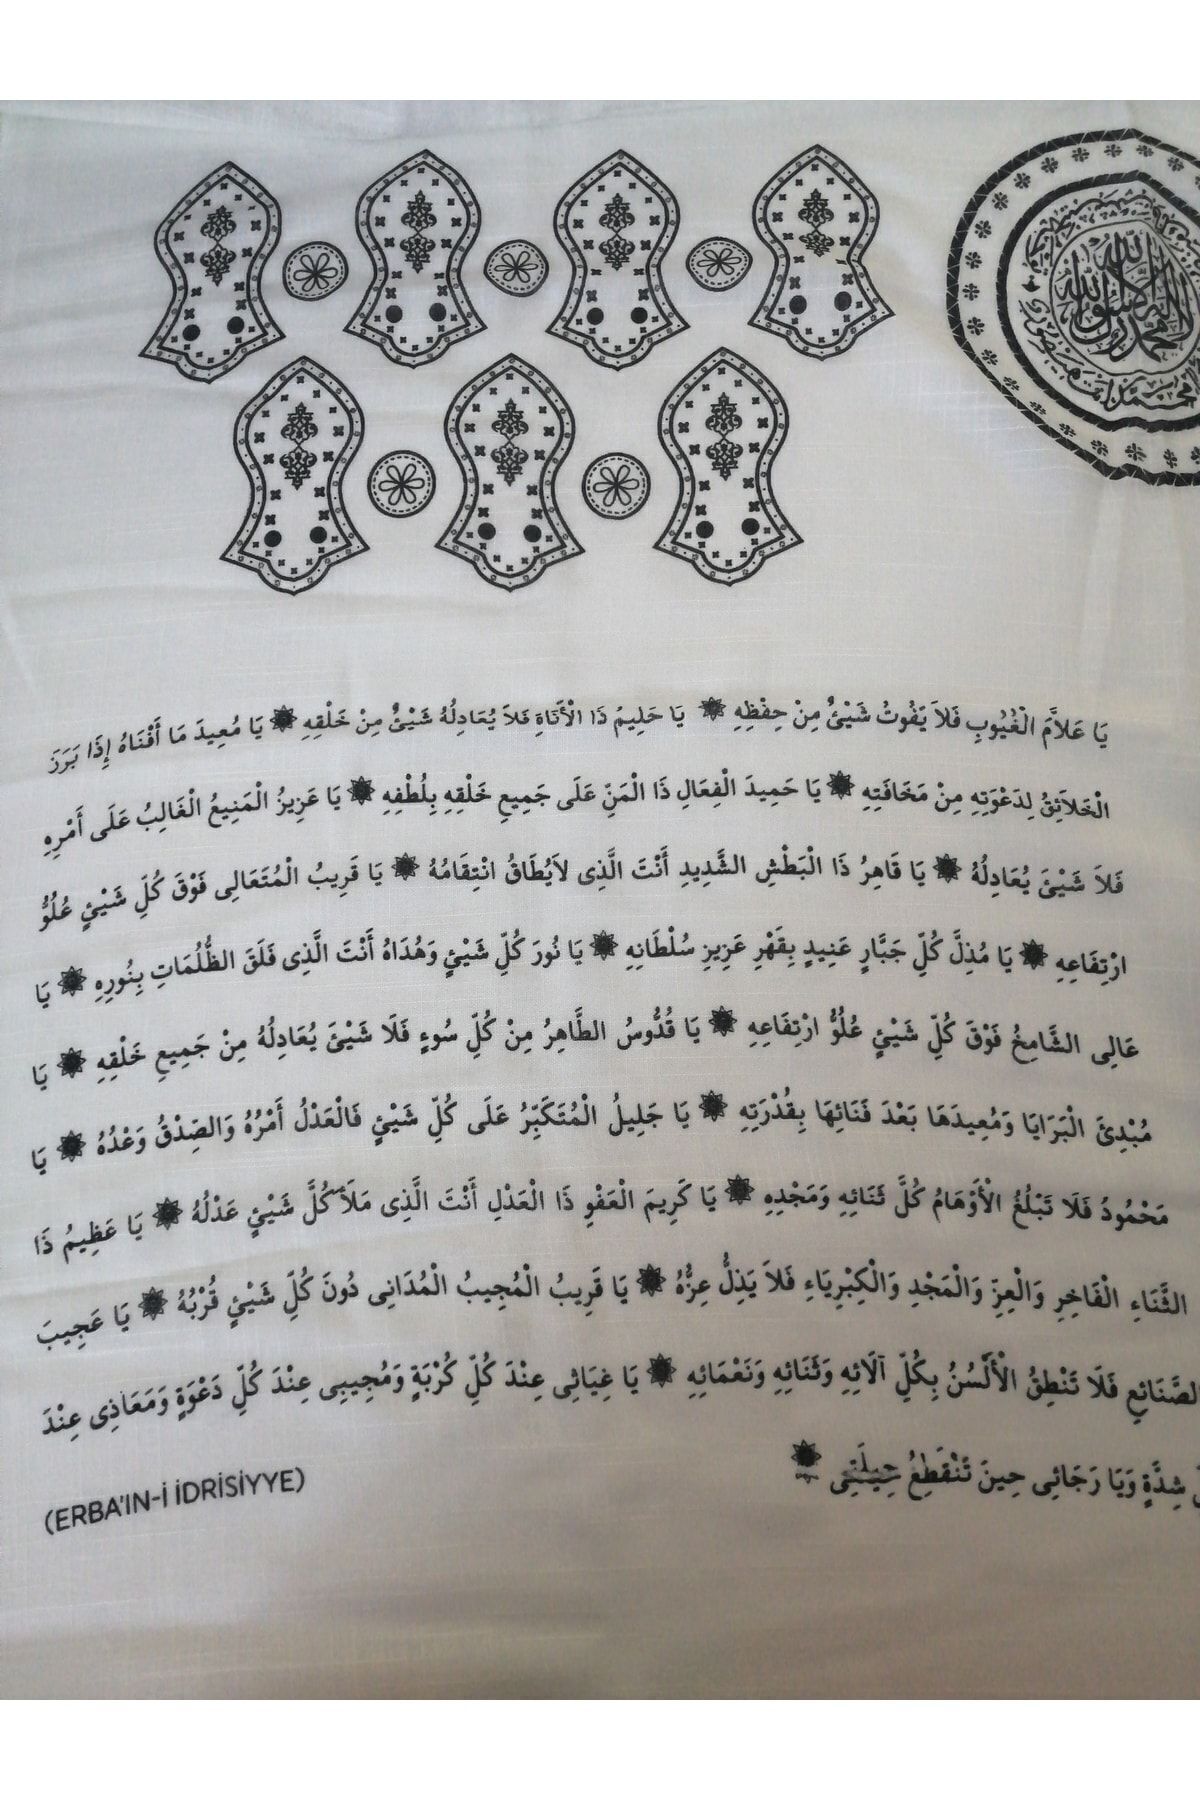 يَا عَلاَّمَ الْغُيُوبِ فَلاَ يَفُوتُ شَيْئٌ مِنْ حِفْظِهِ ۞ يَا حَلِيمُ ذَا الْأَنَاةِ فَلاَ يُعَادِلُهُ شَيْئٌ مِنْ خَلْقِهِ ۞ يَا مُعِيدَ مَا أَفْنَاهُ إِذَا بَرَزَ
الْخَلاَئِقُ لِدَعْوَتِهِ مِنْ مَخَافَتِهِ ۞ يَا حَمِيدَ الْفِعَالِ ذَا الْمَنِّ عَلَى جَمِيعِ خَلْقِهِ بِلُطْفِهِ ۞ يَا عَزِيزُ الْمَنِيعُ الْغَالِبُ عَلَى أَمْرِهِ
فَلاَ شَيْئَ يُعَادِلُهُ ۞ يَا قَاهِرُ ذَا الْبَطْشِ الشَّدِيدِ أَنْتَ الَّذِى لاَيُطَاقُ انْتِقَامُهُ ۞ يَا قَرِيبُ الْمُتَعَالِى فَوْقَ كُلِّ شَيْئٍ عُلُوُّ
ارْتِفَاعِهِ ۞ يَا مُذِلَّ كُلِّ جَبَّارٍ عَنِيدٍ بِقَهْرِ عَزِيزِ سُلْطَانِهِ ۞ يَا نُورَ كُلِّ شَيْئٍ وَهُدَاهُ أَنْتَ الَّذِى فَلَقَ الظُّلُمَاتِ بِنُورِهِ ۞ يَا
عَالِى الشَّامِخُ فَوْقَ كُلِّ شَيْئٍ عُلُوُّ ارْتِفَاعِهِ ۞ يَا قُدُّوسُ الطَّاهِرُ مِنْ كُلِّ سُوءٍ فَلَا شَيْئَ يُعَادِلُهُ مِنْ جَمِيعِ خَلْقِهِ ۞ يَا
مُبْدِئَ الْبَرَايَا وَمُعِيدَهَا بَعْدَ فَنَائِهَا بِقُدْرَتِهِ ۞ يَا جَلِيلُ الْمُتَكَبِّرُ عَلَى كُلِّ شَيْئٍ فَالْعَدْلُ أَمْرُهُ وَالصِّدْقُ وَعْدُهُ ۞ يَا
مَحْمُودُ فَلَا تَبْلُغُ الْأَوْهَامُ كُلَّ ثَنَائِهِ وَمَجْدِهِ ۞ يَا كَرِيمَ الْعَفْوِ ذَا الْعَدْلِ أَنْتَ الَّذِى مَلَأَ كُلَّ شَيْئٍ عَدْلُهُ ۞ يَا عَظِيمُ ذَا
الثَّنَاءِ الْفَاخِرِ وَالْعِزِّ وَالْمَجْدِ وَالْكِبْرِيَاءِ فَلاَ يَذِلُّ عِزُّهُ ۞ يَا قَرِيبُ الْمُجِيبُ الْمُدَانِى دُونَ كُلِّ شَيْئٍ قُرْبُهُ ۞ يَا عَجِيبَ
الصَّنَائِعِ فَلَا تَنْطِقُ الْأَلْسُنُ بِكُلِّ آلَائِهِ وَثَنَائِهِ وَنَعْمَائِهِ ۞ يَا غِيَاثِى عِنْدَ كُلِّ كُرْبَةٍ وَمُجِيبِى عِنْدَ كُلِّ دَعْوَةٍ وَمَعَاذِى عِنْدَ
شِدَّةٍ وَيَا رَجَائِى حِينَ تَنْقَطِعُ حِيلَتِى ۞
(ERBA'IN-İ İDRİSİYYE)